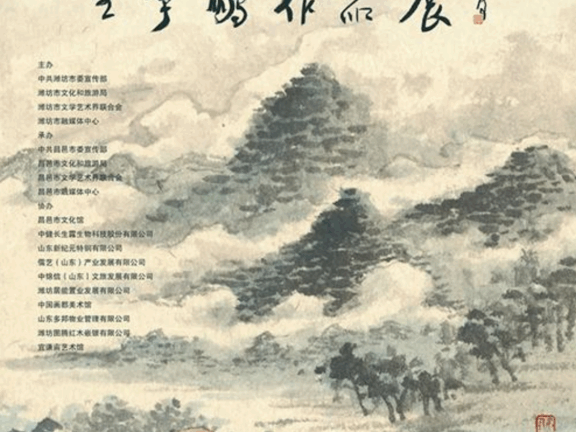 作品展
主办
中共潍坊市委宣传部
潍坊市文化和旅游局
潍坊市文学艺术界联合会
潍坊市融媒体中心
承办
中共昌邑市委宣传部
昌邑市文化和旅游局
昌邑市文学艺术界联合会
昌邑市融媒体中心
协办
昌邑市文化馆
中健长生露生物科技股份有限公司
山东新纪元特钢有限公司
儒艺（山东）产业发展有限公司
中锦信（山东）文旅发展有限公司
置业发展有限公司
中国画都美术馆
山东多邦物业管理有限公司
潍坊图腾红木嵌银有限公司
艺术馆